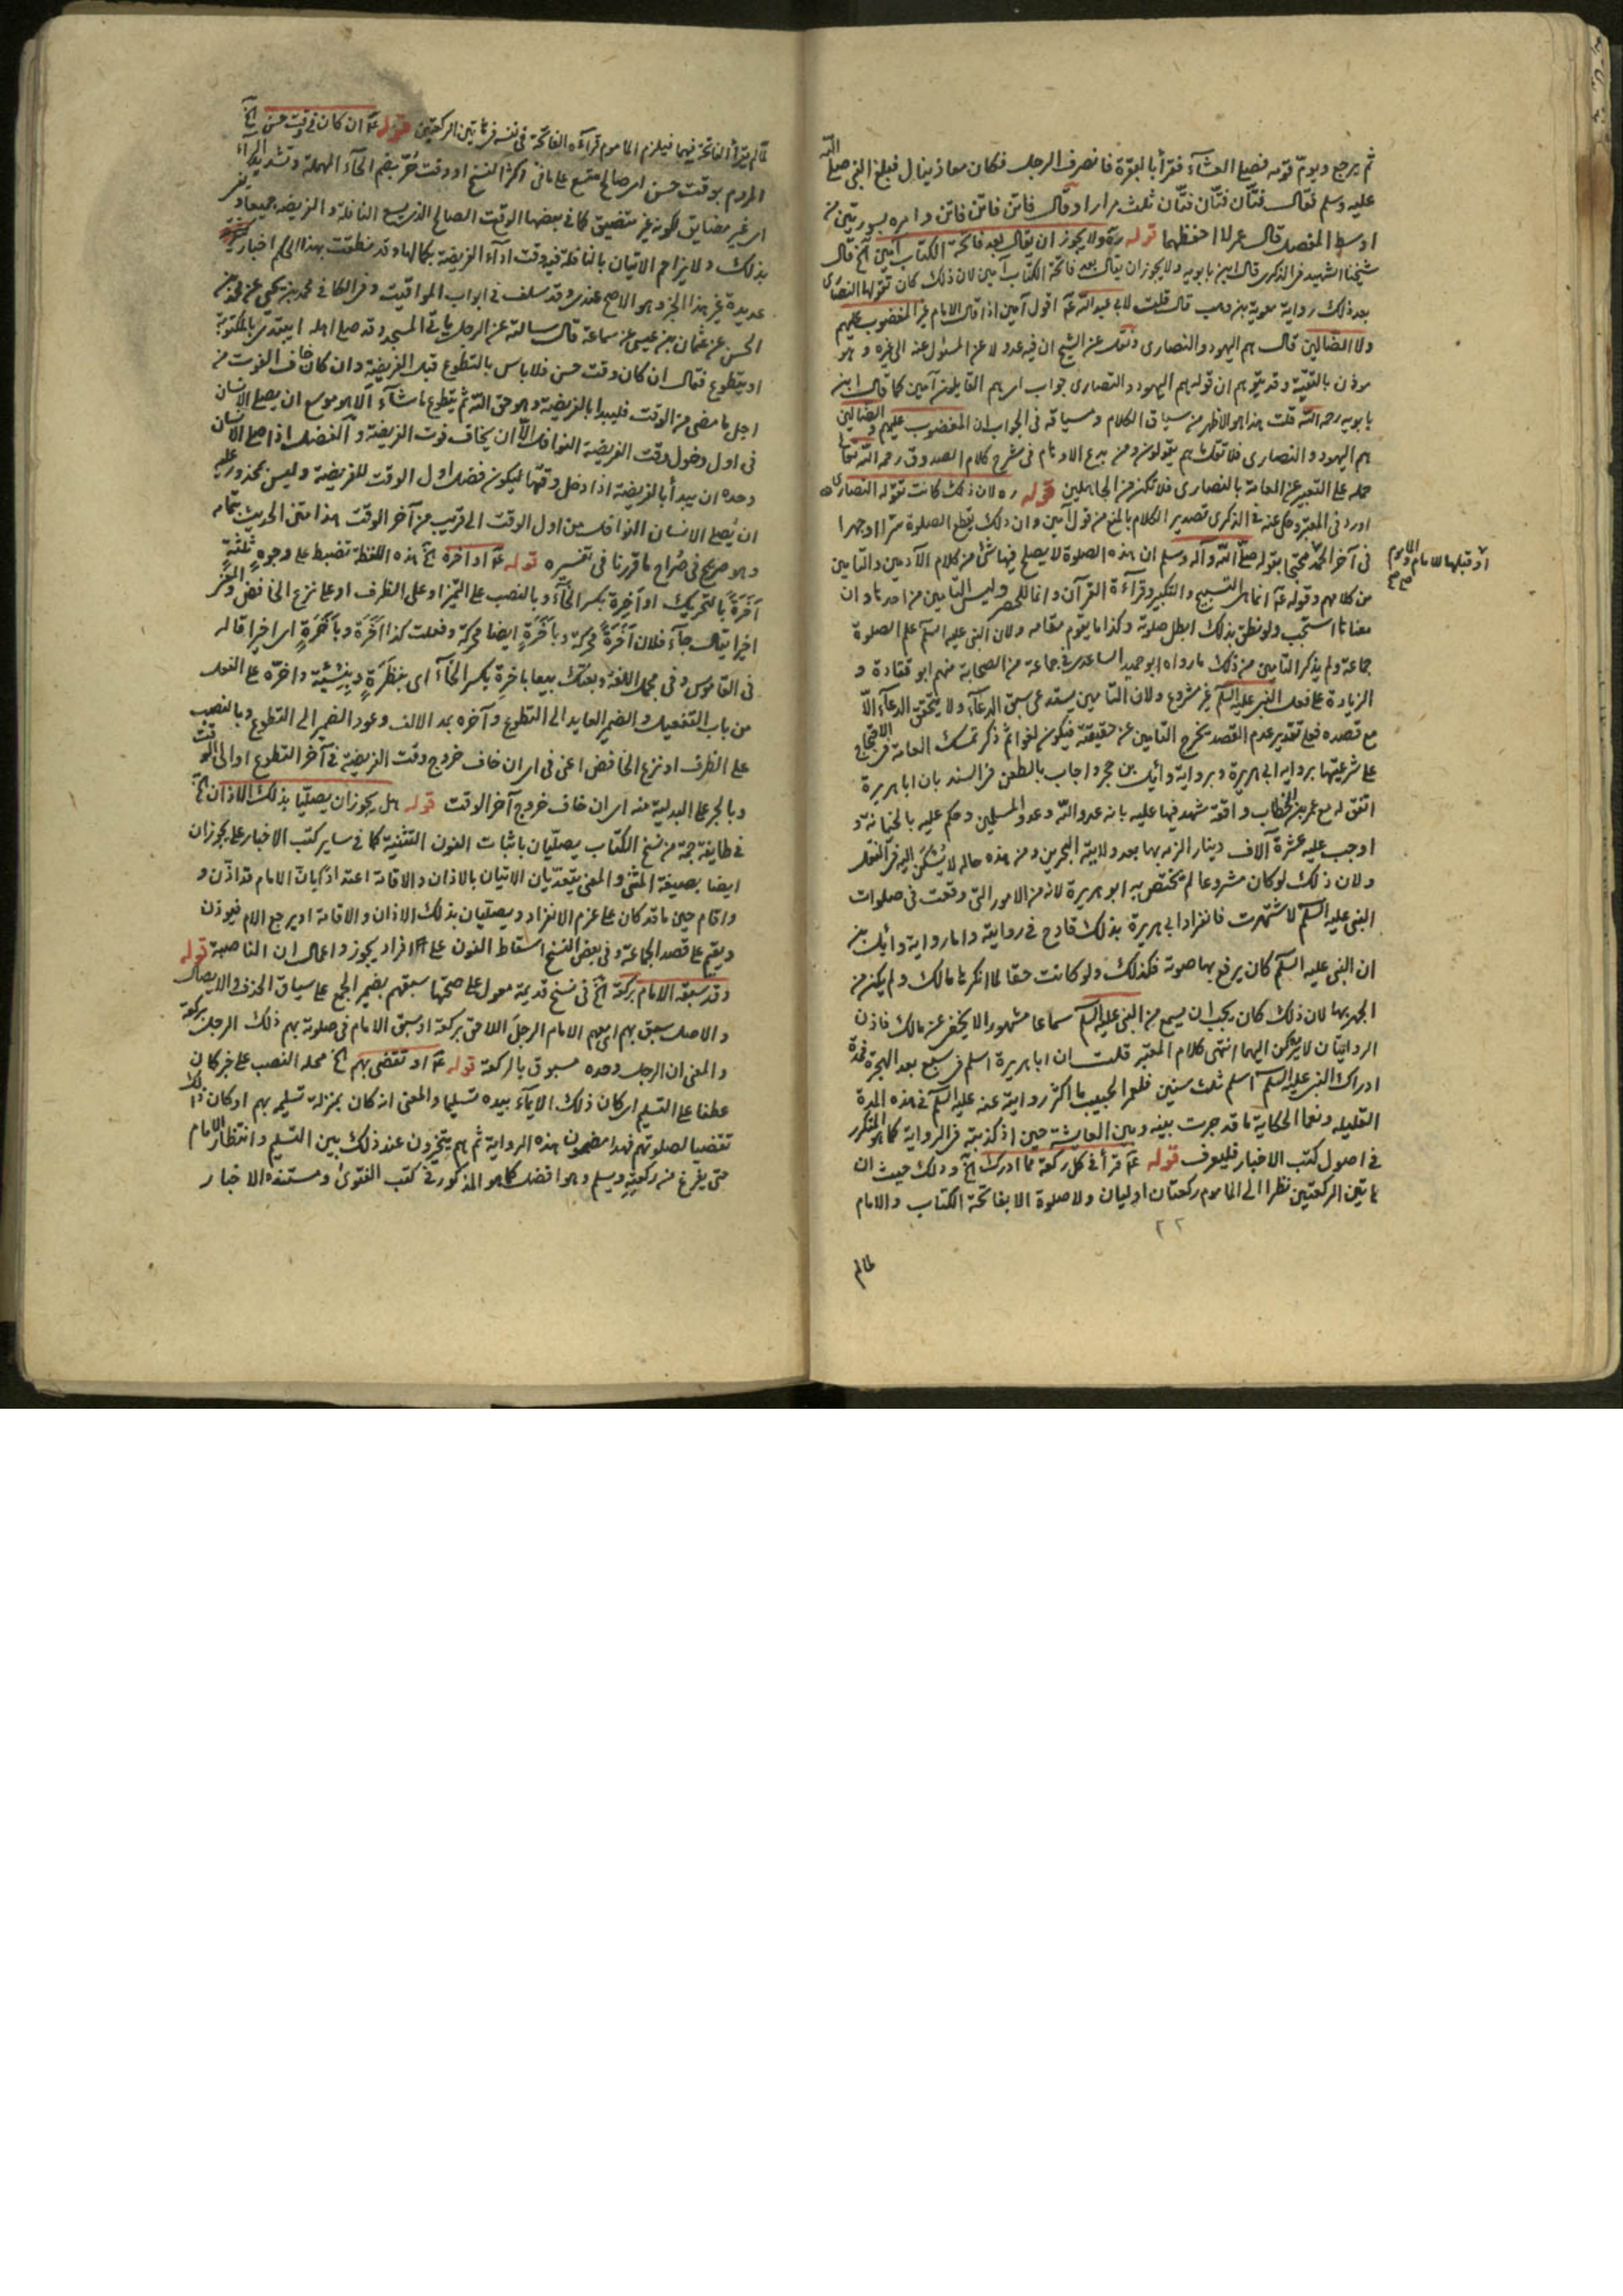 ثم يرجع ويؤم قومه فصلى العشآء فقرأ بالبقرة فانصرف الرجل فكان معاذ ينال فبلغ النبى صلى الله
عليه وسلم فقال فتّان فتّان فتّان ثلث مرار او قال فاتن فاتن فاتن وامره بسورتين من
اوسط المفصل قال عمر لا احفظهما قوله ره ولا يجوز ان يقال بعد فاتحة الكتاب آمين آلخ قال
شيخنا الشهيد فى الذكرى قال ابن بابويه ولا يجوز ان يقال بعد فاتحة الكتاب آمين لان ذلك كان تقولها النصارى
بعد ذلك رواية معوية بن وهب قال قلت لابى عبد الله عم اقول آمين اذا قال الامام غير المغضوب عليهم
ولا الضالين قال هم اليهود والنصارى ونقل عن الشيخ ان فيه عدولا عن المسئول عنه الى غيره وهو
موذن بالتقية وقد يتوهم ان قوله هم اليهود والنصارى جواب اى هم القايلون آمين كما قال ابن
بابويه رحمه الله قلت هذا هو الاظهر من سياق الكلام ومساقه فى الجواب ان المغضوب عليهم والضالين
هم اليهود والنصارى فلا تقل هم يقولون ومن بدع الاوهام فى شرح كلام الصدوق رحمه الله تعالى
حمله على التعبير عن العامة بالنصارى فلا تكن من الجاهلين قوله ره لان ذلك كانت تقوله النصارى
اورد فى المعتبر وحكى عنه فى الذكرى تصدير الكلام بالمنع من قول آمين وان ذلك يقطع الصلوة سرا او جهرا
فى آخر الحمد محتجا بقوله صلى الله وآله وسلم ان هذه الصلوة لا يصلح فيها شئ من كلام الآدميين والتامين
او قبلها للامام والماموم صح
من كلامهم وقوله عم انما هى التسبيح والتكبير وقرآءة القرآن وانما للحصر وليس التامين من احدها وان
معناها استجب ولو نطق بذلك ابطل صلوته وكذا ما يقوم مقامه ولان النبى عليه السلم علم الصلوة
جماعة ولم يذكر التامين من ذلك ما رواه ابو حميد الساعدى فى جماعة من الصحابة منهم ابو قتادة و
الزيادة على فعل النبى عليه السلم غير مشروع ولان التامين يستدعى سبق الدعآء ولا يتحقق الدعآء الّا
مع قصده فعلى تقدير عدم القصد يخرج التامين عن حقيقته فيكون لغوا ثم ذكر تمسك العامة فى الاحتجاج
على شرعيتها برواية ابى هريرة وبرواية وائل بن حجر واجاب بالطعن فى السند بان ابا هريرة
اتفق له مع عمر بن الخطاب واقعة شهد فيها عليه بانه عدو الله وعدو المسلمين وحكم عليه بالخيانة و
اوجب عليه عشرة آلاف دينار الزمه بها بعد ولايته البحرين ومن هذه حاله لا يُسْكَن اليه فى النقل
ولان ذلك لو كان مشروعا لم يختص به ابو هريرة لانه من الامور التى وقعت فى صلوات
النبى عليه السلم لاشتهرت فانفراد ابى هريرة بذلك قادح فى روايته واما رواية وائل بن
ان النبى عليه السلم كان يرفع بها صوته فكذلك ولو كانت حقا لما انكرها مالك ولم يكن من
الجهر بها لان ذلك كان يجب ان يسمع من النبى عليه السلم سماعا مشهورا لا يخفى عن مالك فاذن
الروايتان لا يركن اليهما انتهى كلام المعتبر قلت ان ابا هريرة اسلم فى سبع بعد الهجرة فمدة
ادراك النبى عليه السلم اسلم ثلث سنين فلعمر الحبيب ما اكثر رواية عنه عليه السلم فى هذه المدة
القليله ونعما الحكاية ما قد جرت بينه وبين العايشة حين اذ كذبته فى الرواية كما هو المتكرر
فى اصول كتب الاخبار فليعرف قوله عم قرأ فى كل ركعة مما ادرك آلخ وذلك حيث ان
هاتين الركعتين نظرا الى الماموم ركعتان اوليان ولا صلوة الا بفاتحة الكتاب والامام
٢٢
لما لم
لما لم يقرأ الفاتحة فيهما فيلزم الماموم قرآءة الفاتحة فى نفسه فى هاتين الركعتين قوله عم ان كان فى وقت حسن آلخ
المروم بوقت حسن اى صالح متسع على ما فى اكثر النسخ او وقت حُرّ بضم الحآء المهملة وتشديد الرآء
اى غير مضايق لكونه غير متضيق كما فى بعضها الوقت الصالح الذى يسع النافلة والفريضة جميعا و
بذلك ولا يزاحم الاتيان بالنافلة فيه وقت ادآء الفريضة بكمالها وقد نطقت بهذا الحكم اخبار
عديدة غير هذا الخبر وهو الاصح عندى وقد سلف فى ابواب المواقيت وفى الكافى محمد بن يحيى عن محمد بن
الحسن عن عثمان بن عيسى عن سماعة قال سالته عن الرجل ياتى المسجد وقد صلى اهله ايبتدى بالمكتوبة
او يتطوع فقال ان كان وقت حسن فلا باس بالتطوع قبل الفريضة وان كان خاف الفوت من
اجل ما مضى من الوقت فليبدا بالفريضة وهو حق الله ثم يتطوع ما شآء الا هو موسع ان يصلى الانسان
فى اول دخول وقت الفريضة النوافل الّا ان يخاف فوت الفريضة والفضل اذا صلى الانسان
وحده ان يبدأ بالفريضة اذا دخل وقتها ليكون فضل اول الوقت للفريضة وليس بمحذور عليه
ان يصلى الانسان النوافل من اول الوقت الى قريب من آخر الوقت هذا متن الحديث بتمامه
وهو صريح فى صُراح ما قررنا فى تفسيره قوله عم او اخره آلخ هذه اللفظة تضبط على وجوه ثلثة
أخَرَةً بالتحريك او أخِرة بكسر الخآء وبالنصب على التميز او على الظرف او على نزع الخافض
اخيرا يقال جآء فلان أَخَرَةً محركة وبأخَرَةٍ ايضا محركة وفعلت كذا أخَرَة وبأخَرَةٍ اى اخيرا قاله
فى القاموس وفى مجمل اللغة وبعتك بيعا باخرة بكسر الخآء اى بنظِرَةٍ وبنسيئة واخّره على الفعل
من باب التفعيل والضمير العايد الى التطوع وآخره بمد الالف وعود الضمير الى التطوع وبالنصب
على الظرف او نزع الخافض اعنى فى اى ان خاف خروج وقت الفريضة فى آخر التطوع او الى الوقت
وبالجر على البدلية منه اى ان خاف خروج آخر الوقت قوله هل يجوز ان يصليا بذلك الاذان آلخ
فى طايفة جمة من نسخ الكتاب يصليان باثبات النون التثنية كما فى ساير كتب الاخبار على يجوزان
ايضا بصيغة المثنى والمعنى يتعديان الاتيان بالاذان والاقامة اعتدادا بان الامام قد اذّن و
واقام حين ما قد كان على عزم الانفراد ويصليان بذلك الاذان والاقامة او يرجع الامام فيوذن
ويقيم على قصد الجماعة وفى بعض النسخ اسقاط النون على افراد يجوز واعمال ان الناصبة قوله
وقد سبقه الامام بركعة آلخ فى نسخ قديمة معول على صحتها سبقهم بضمير الجمع على سياق الحذف والايصال
والاصل سبق بهم اى بهم الامام الرجل اللاحق بركعة او سبق الامام فى صلوته بهم ذلك الرجل بركعة
والمعنى ان الرجل وحده مسبوق بالركعة قوله عم او تقضى بهم آلخ محله النصب على خبر كان
عطفا على التسليم اى كان ذلك الايمآء بيده تسليما والمعنى انه كان بمنزلة تسليمه بهم او كان ذلك
تقضيا لصلوتهم فهذا مضمون هذه الرواية ثم هم يتخيرون عند ذلك بين التسليم وانتظار الامام
حتى يفرغ من ركعته ويسلم وهو افضل كما هو المذكور فى كتب الفتوى ومستنده الاخبار